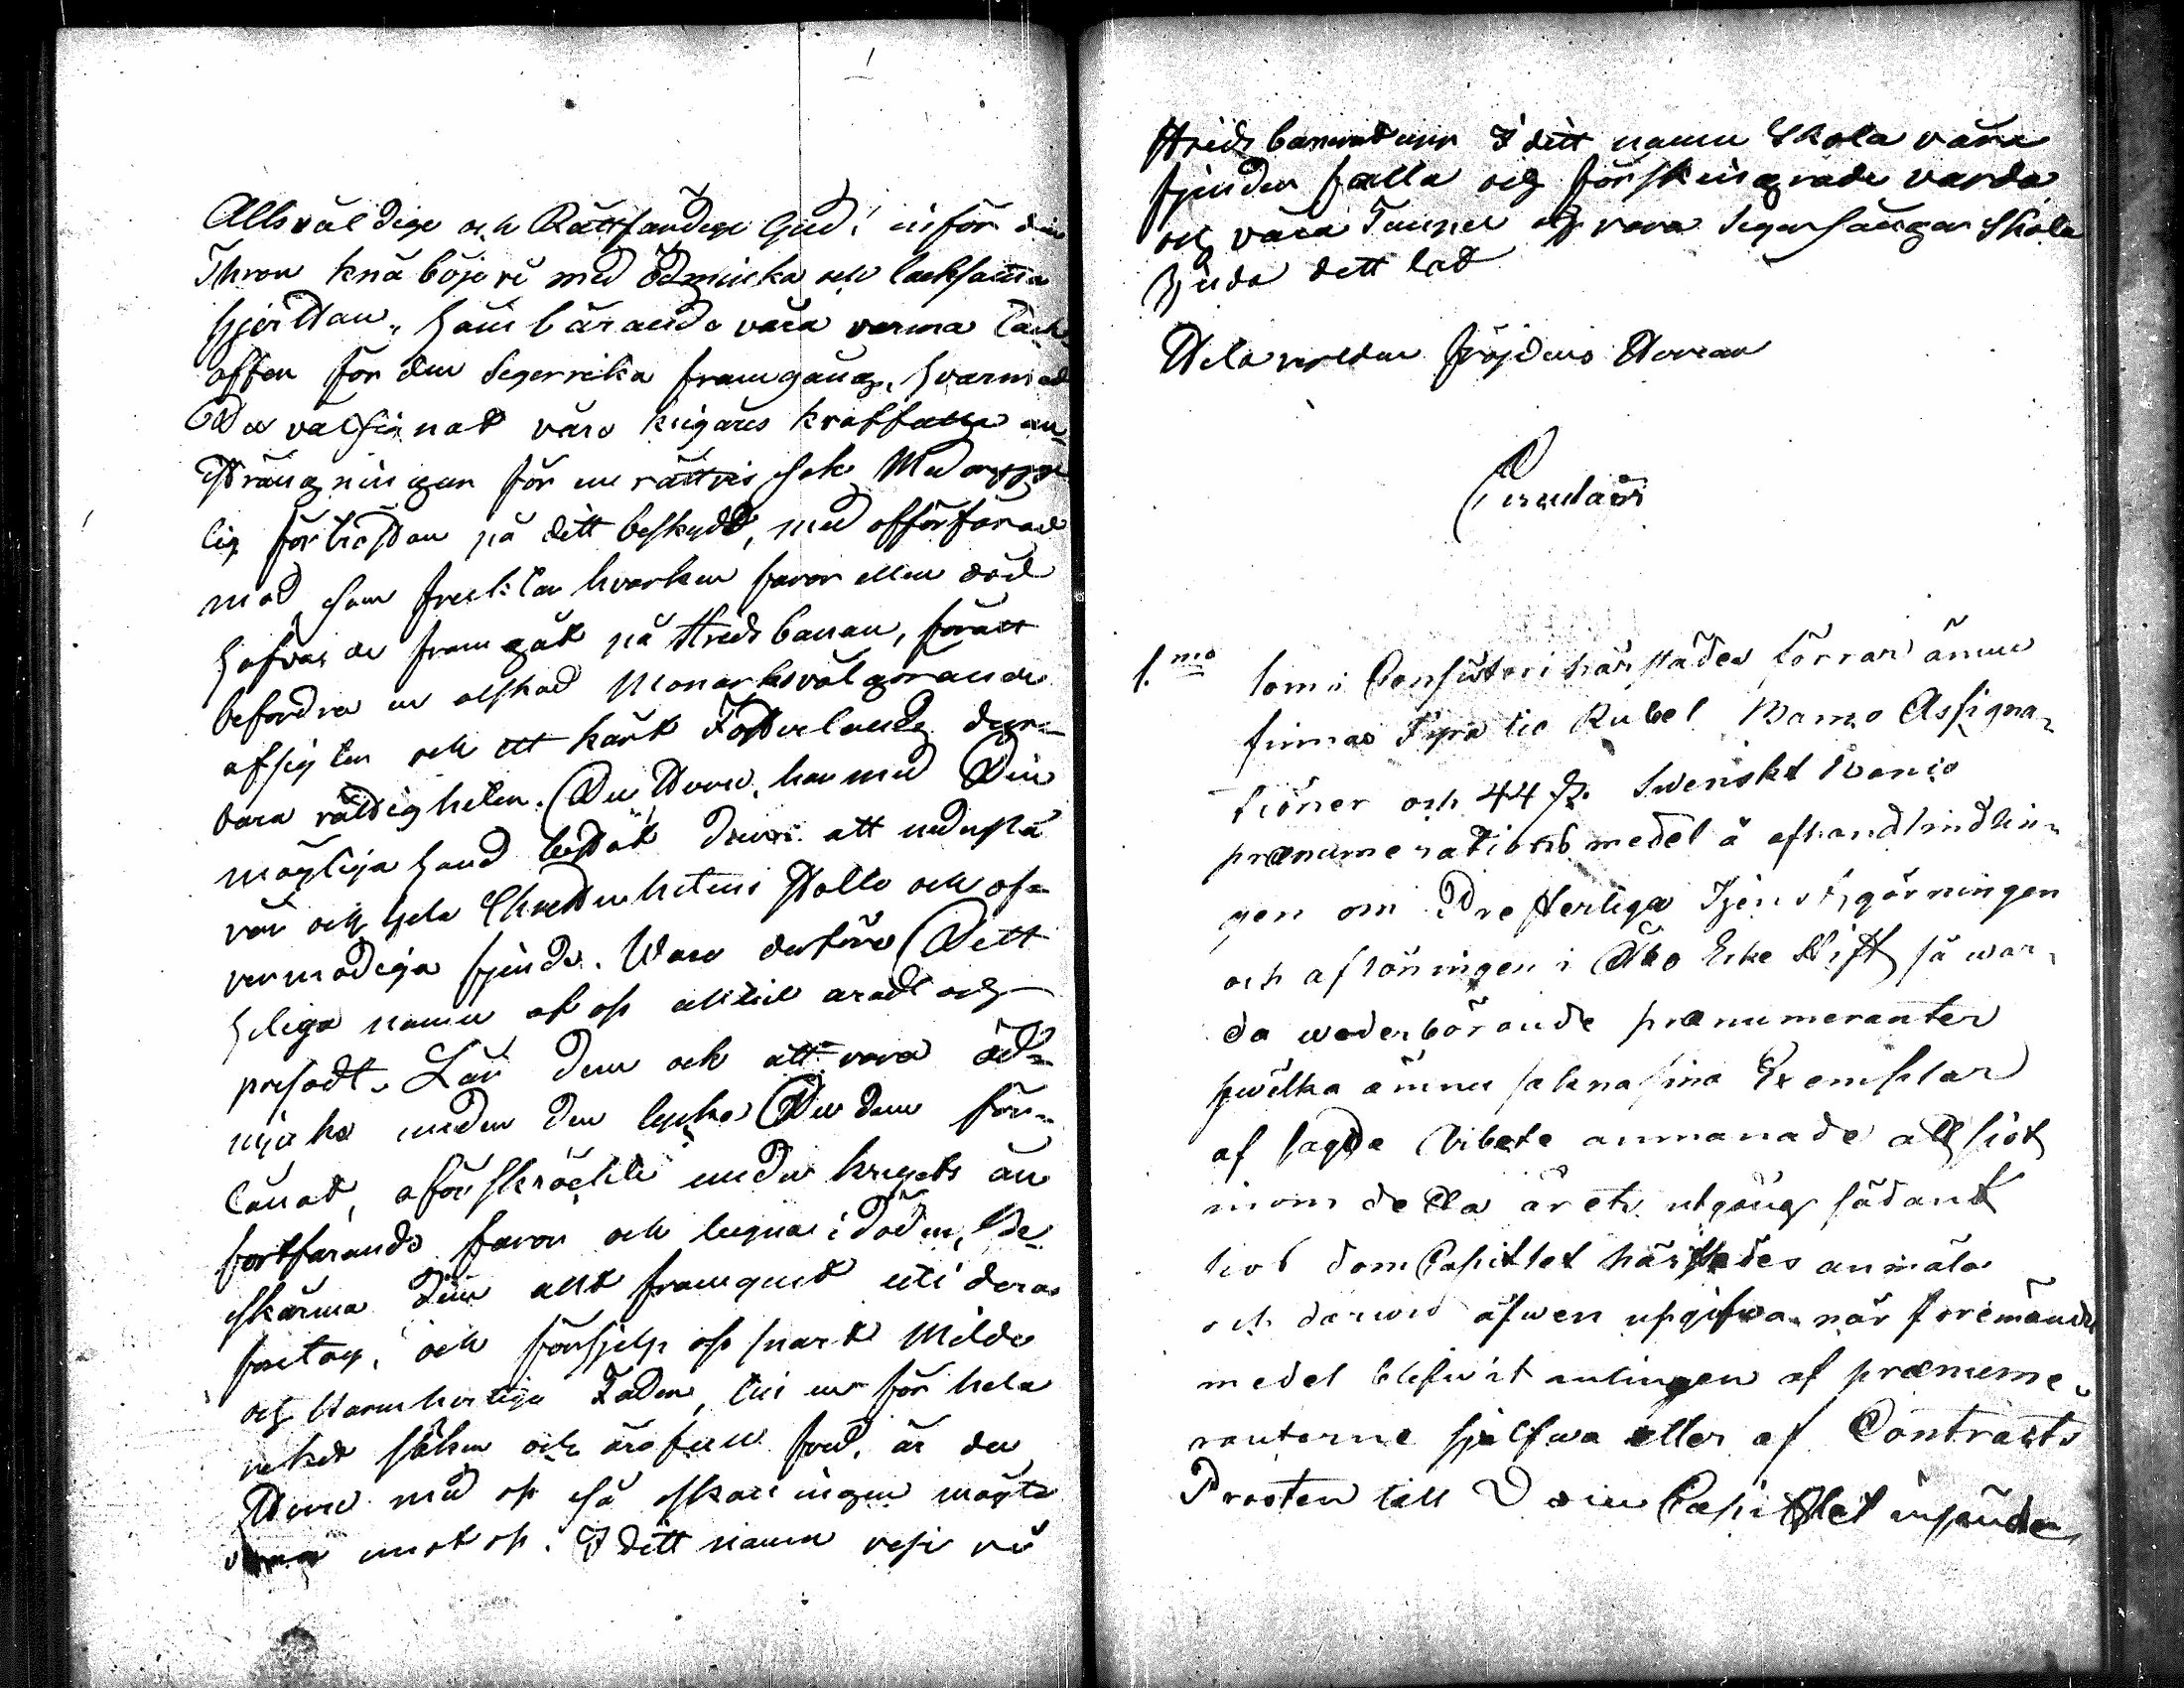 Allsväldige och Rättfärdige Gud! inför din
Thron knäböje vi med Ödmiuka och tacksamma
hjerttan, hämbärande våra varma tack-
offer för den Segerrika framgång, hvarmed
Du välsignat våra krigares kraftfulla an-
strängningar för en rättvis sak. Med
lig förtröstan på ditt beskydd, med oförfärad
mod, som fruktar hvarken faror eller död
hafva de framgåt på stridsbanan, för att
befordra en älskad Monarks välgörande
afsigter och ett kärt Fosterlands dyr-
bara rättigheter. Du Herre, har med Din
mägtiga hand bistått dem att nedslå
vår och hela Christenhetens stolte och öf-
vermodige fjende. Vare derföre Ditt
heliga namn af oss alltid äradt och
prisadt. Lär dem ock att vara öd-
mjuka under den lycka Du dem för-
länat, oförskräckte under krigets än
fortfarande faror och lugna i döden, Be-
skärma dem allt framgent uti deras
företag, och förhjelp oss snart Milde
och Barmhertige Fader, till en för hela
riket säker och ärofull fred, är du
Herre med oss så skall ingen mägta
vara emot oss. I ditt namn resa vi
Stridsbaneret upp I ditt namn Skola våra
fjender falla och förskingrade varda
och våra Tempel och våra Segersånger Skola
ljuda ditt lof
Hela verlden fröjdens Herran
Circulair
1.mo Som i Consistorii härstädes förrar ännu
finnas Fyratio Rubel Banco Assigna-
tioner och 44 sk. Swenskt Banco
prænumerations medel å afhandlindlin-
gen om Presterliga Tjenstgörningen
och aflöningen i Åbo Erke Stift så war-
da wederbörande prænumeranter
hwilka ännu sakna sina Exemplar
af sagde Arbete anmanade att sist
inom detta årets utgång sådant
hos DomCapitlet härstädes anmäla
och derwid äfwen upgifwa när förenämnde
medel blefwit antingen af prænume-
ranterne sjelfwa eller af Contracts
Prosten till DomCapitlet insände